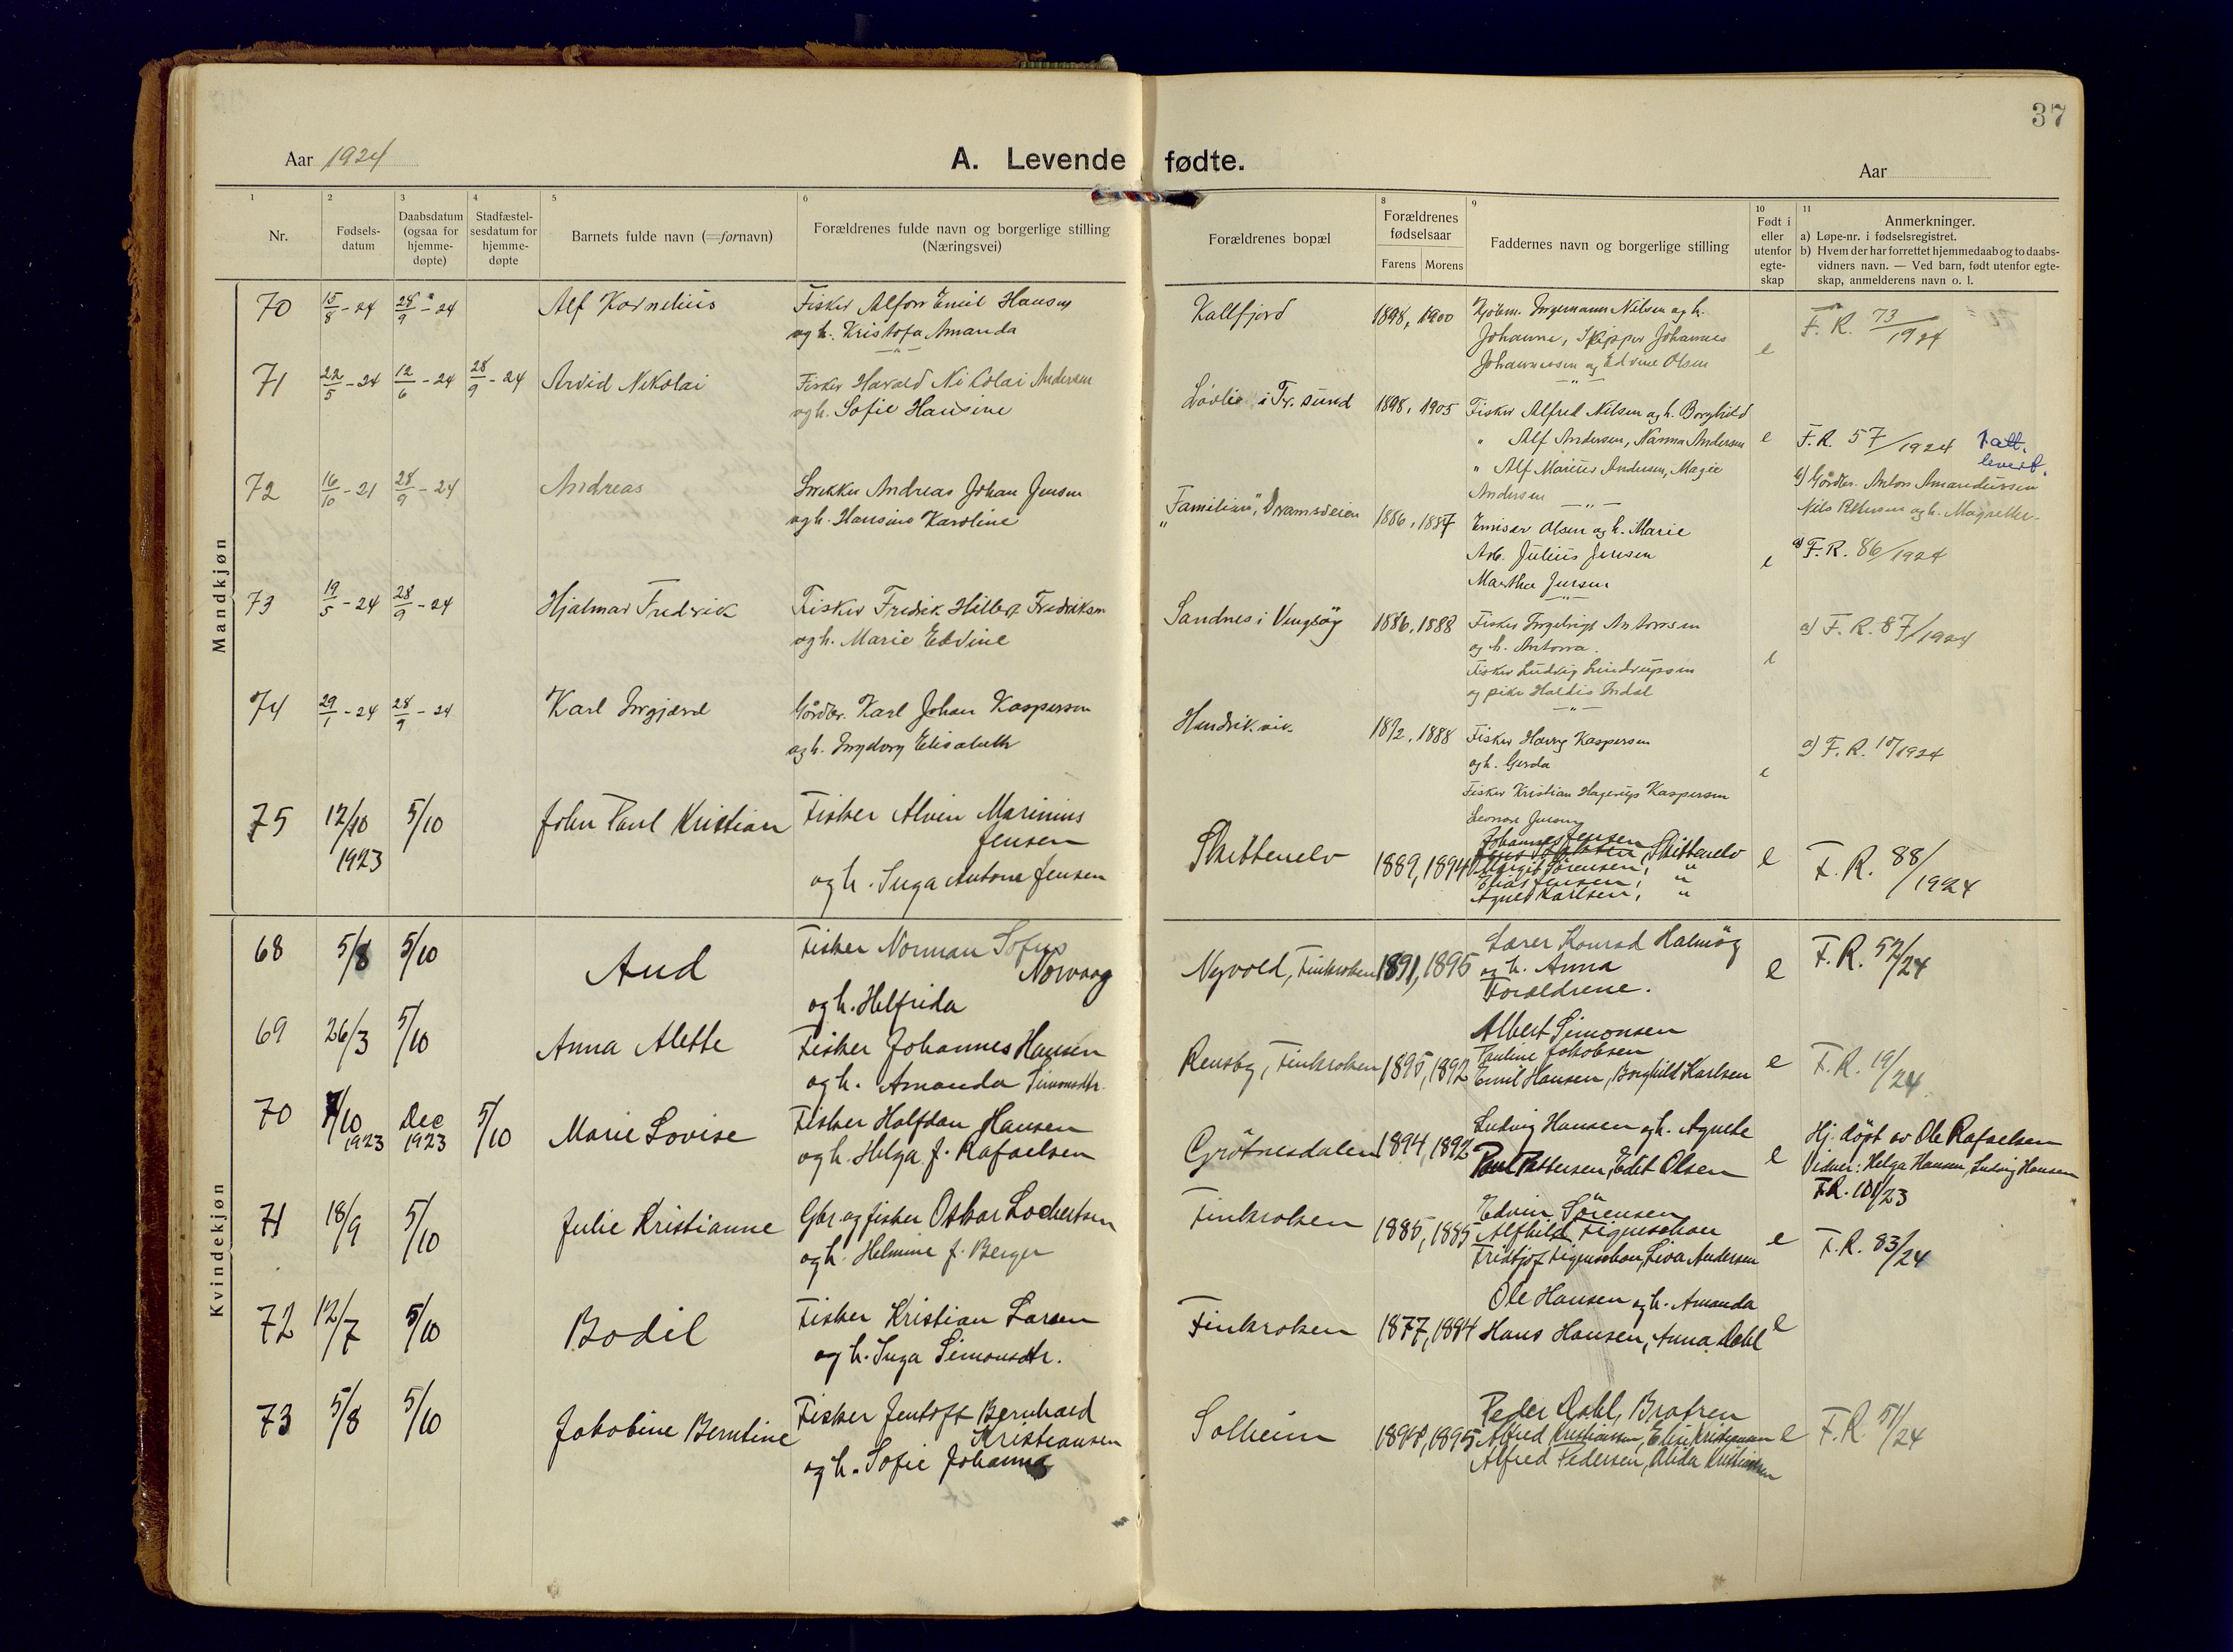 37
Aar 1924
A. Levende fødte.
Aar
1 2 3 4 5 6 8 9 10 11
Nr.
Fødsels-
datum
Daabsdatum
(ogsaa for
hjemme-
døpte)
Stadfæstel-
sesdatum for
hjemme-
døpte
Barnets fulde navn (=fornavn)
Forældrenes fulde navn og borgerlige stilling
(Næringsvei)
Forældrenes bopæl
Forældrenes
fødselsaar
Farens Morens
Faddernes navn og borgerlige stilling
Født i
eller
utenfor
egte-
skap
Anmerkninger.
a) Løpe-nr. i fødselsregistret.
b) Hvem der har forrettet hjemmedaab og to daabs-
vidners navn. — Ved barn, født utenfor egte-
skap, anmelderens navn o. l.
Mandkjøn
70 15/8 - 24 28/9 - 24 Alf Kornelius
Fisker Alfon Emil Hansen
og h. Kristofa Amanda
Kallfjord 1898, 1900
Kjøbm. Ingemann Nilsen og h.
Johanna, Skipper Johannes
Johannessen og Edvine Olsen
e
F. R. 73/1924
71 22/5 - 24 12/6 - 24 28/9 - 24 Arvid Nikolai
Fisker Harald Nikolai Andersen
og h. Sofie Hansine
Løvlie i Tr. sund 1898, 1905
Fisker Alfred Nilsen og h. Borghild
" Alf Andersen, Nanna Andersen
" Alf Marius Andersen, Magie
Andersen
e
F. R. 57/1924 1 att.
levert.
72 16/10 - 21 28/9 - 24 Andreas
Snekker Andreas Johan Jensen
og h. Hansine Karoline
"Familien", Dramsveien 1886, 1887
Emisær Olsen og h. Marie
Arb. Julius Jensen
Martha Jensen
e
b) Gårdbr. Anton Amandussen
Nils Petersen og h. Magrethe.
a) F. R. 86/1924
73 19/5 - 24 28/9 - 24 Hjalmar Fredrik
Fisker Fredrik Hilbert Fredriksen
og h. Marie Edvine
Sandnes i Vengsøy 1886, 1888
Fisker Ingebrigt Antonsen
og h. Antona.
Fisker Ludvig Lindrupsen
og pike Haldis Indal
e
a) F. R. 87/1924
74 29/1 - 24 28/9 - 24 Karl Ingjærd
Gårdbr. Karl Johan Kaspersen
og h. Ingeborg Elisabeth
Hendrikvik. 1872, 1888
Fisker Harry Kaspersen
og h. Gerda
Fisker Kristian Hagerup Kaspersen
Leonore Jensen
e
a) F. R. 10/1924
75 12/10 1923 5/10 John Paul Kristian
Fisker Alvin Marinius
Jensen
og h. Inga Antone Jensen
Skittenelv 1889, 1894
Johannes Jensen
Skittenelv
Margit Sørensen, "
Elias Jensen, "
Agnes Karlsen, "
e
F. R. 88/1924
Kvindekjøn
68 5/8 5/10 Aud
Fisker Norman Sofus
Norvaag
og h. Helfrida
Nyvold, Finkroken 1891, 1895
Lærer Konrad Halmøy
og h. Anna
Forældrene.
e
F. R. 52/24
69 26/3 5/10 Anna Alette
Fisker Johannes Hansen
og h. Amanda Simonsdtr.
Rensby, Finkroken 1895, 1892
Albert Simonsen
Pauline Jakobsen
Emil Hansen, Borghild Karlsen
e
F. R. 19/24
70 7/10 1923 Dec 1923 5/10 Marie Lovise
Fisker Halfdan Hansen
og h. Helga f. Rafaelsen
Grøtnesdalen 1894, 1892
Ludvig Hansen og h. Agnete
Paul Pettersen, Edit Olsen
e
Hj. døpt av Ole Rafaelsen
Vidner: Helga Hansen, Ludvig Hansen
F.R. 101/23
71 18/9 5/10 Julie Kristianne
Gbr. og fisker Oskar Lochertsen
og h. Helmine f. Berger
Finkroken 1885, 1885
Edvin Sörensen
Alfhild Figenschou
Fridtjof Figenschou, Liva Andersen
e
F. R. 83/24
72 12/7 5/10 Bodil
Fisker Kristian Larsen
og h. Inga Simonsdtr.
Finkroken 1877, 1884
Ole Hansen og h. Amanda
Hans Hansen, Anna Dahl
e
73 5/8 5/10 Jakobine Berntine
Fisker Jentoft Bernhard
Kristiansen
og h. Sofie Johanna
Solheim 1894, 1895
Peder Dahl, Bratren
Alfred Kristiansen, Elise Kristiansen
Alfred Pedersen, Alida Kristiansen
e
F. R. 51/24